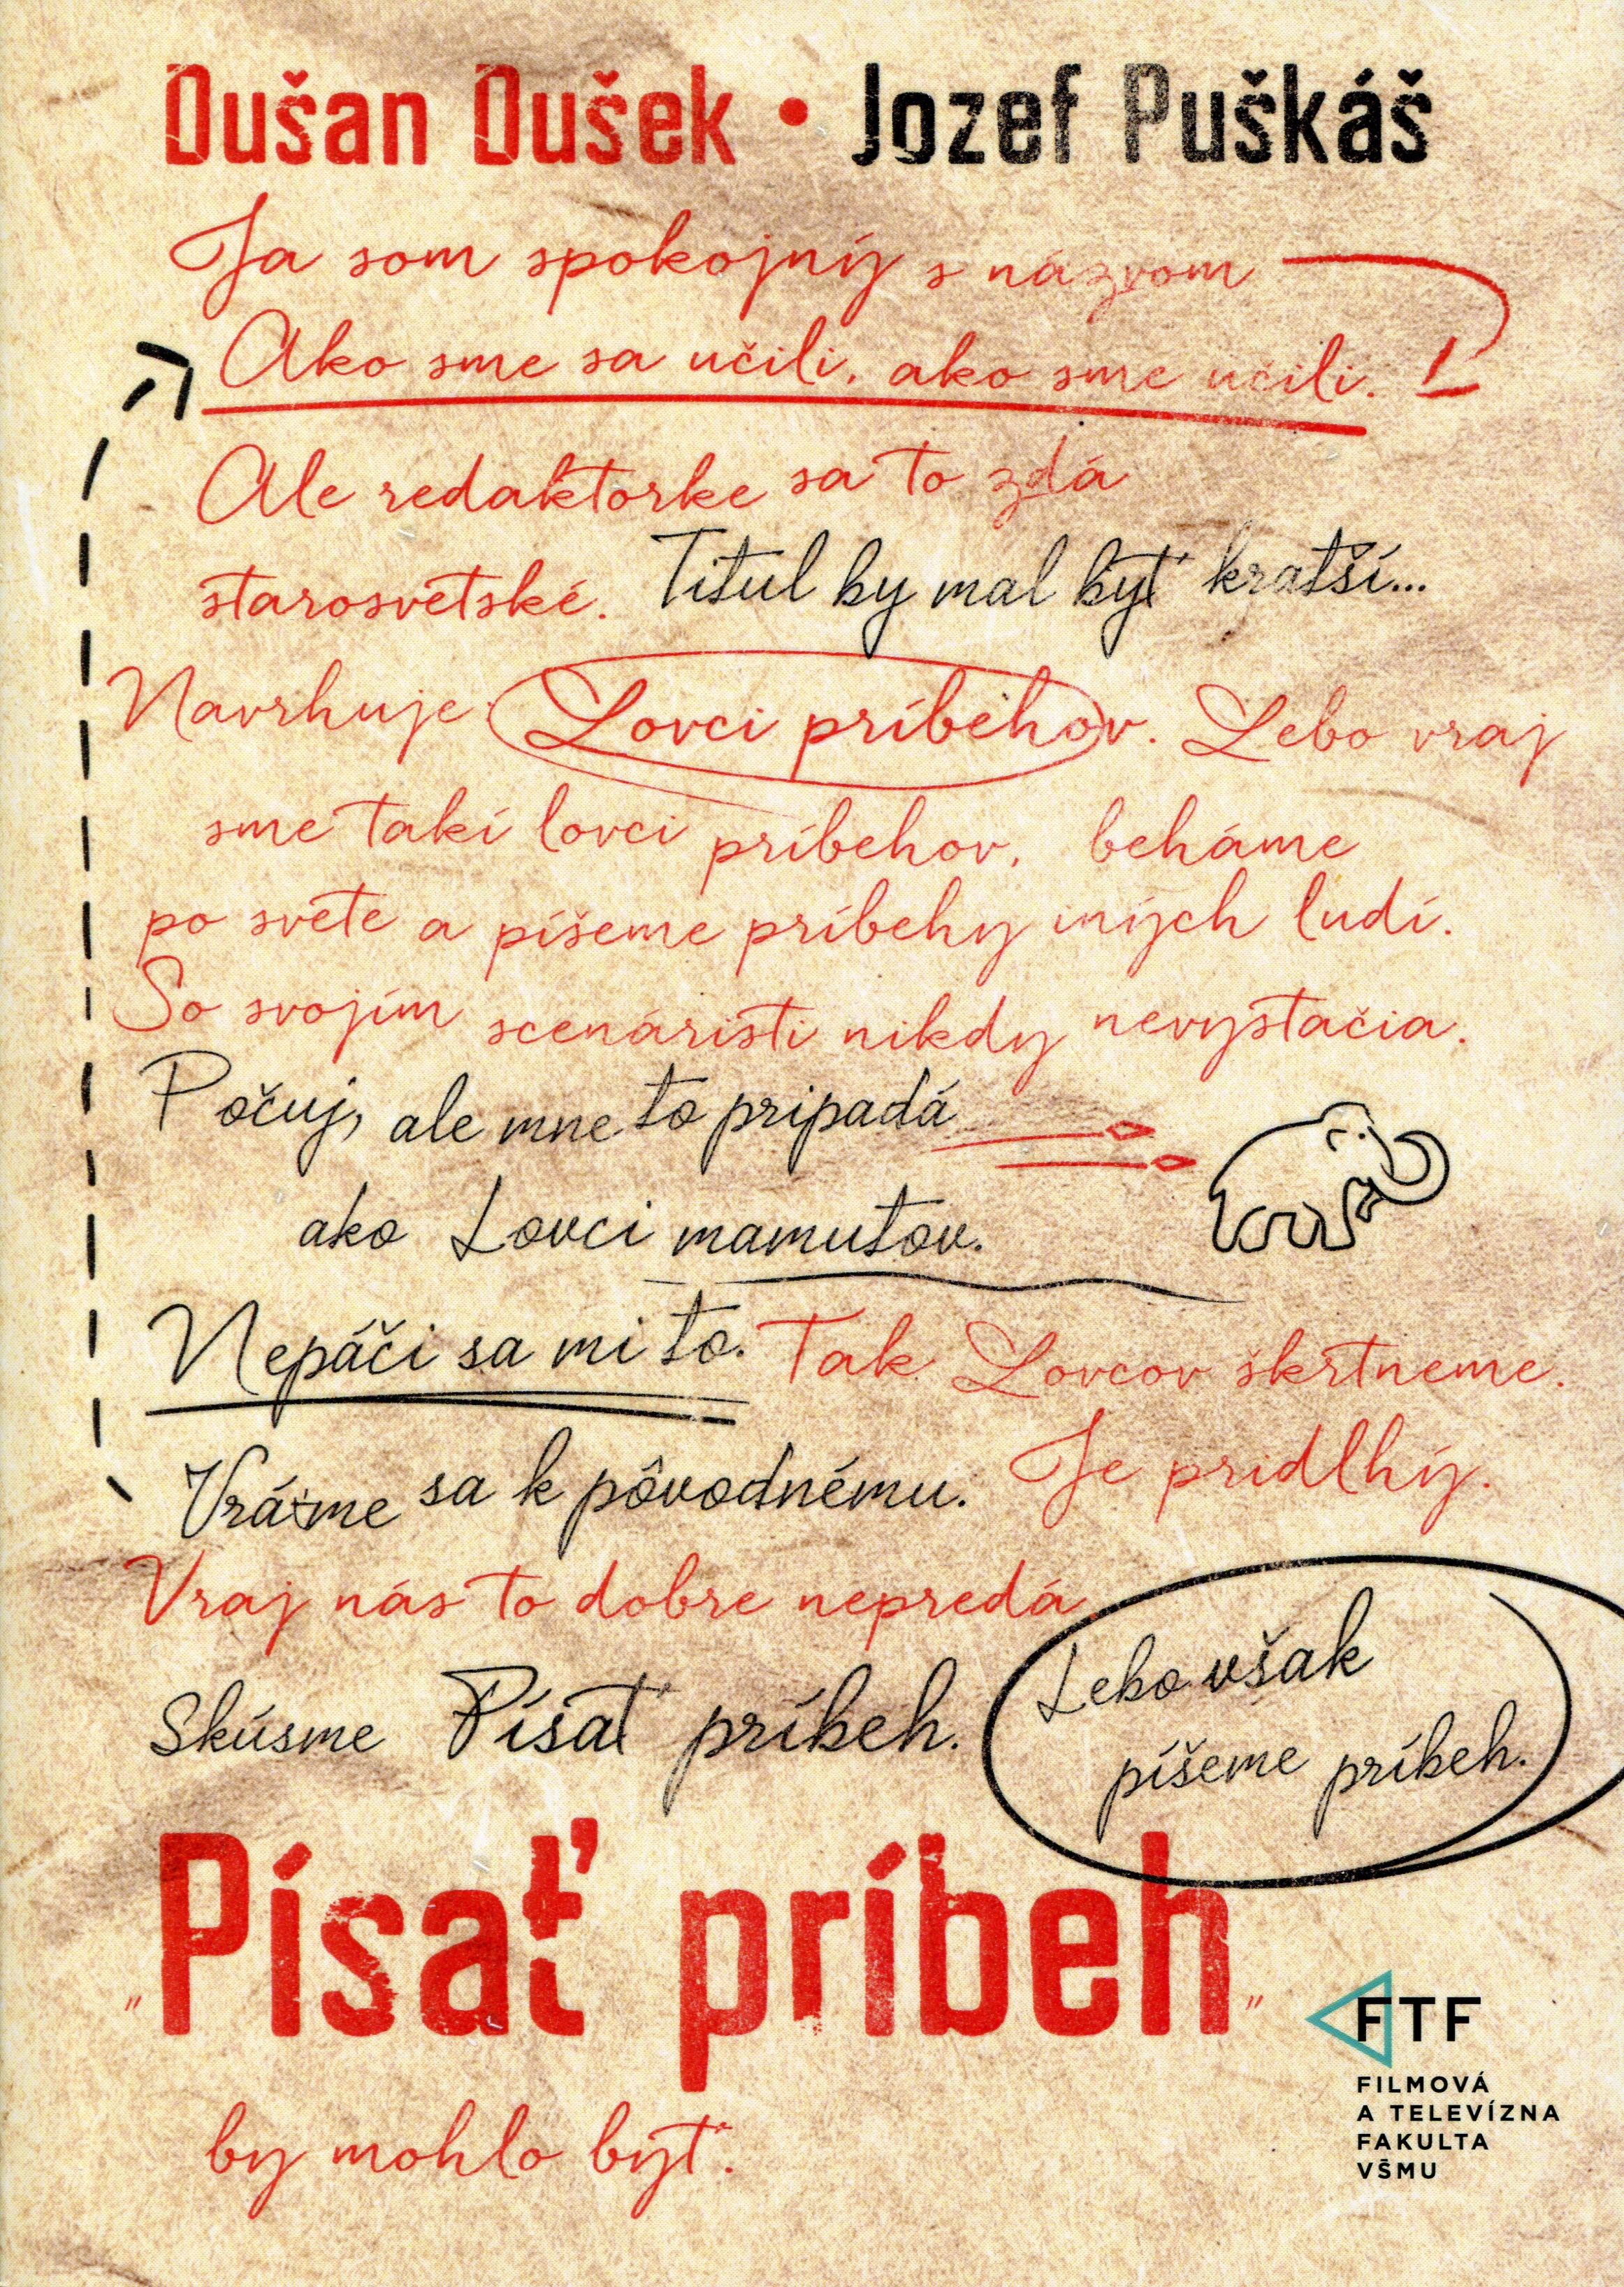 Dušan Dušek • Jozef Puškáš
Ja som spokojný s názvom
Ako sme sa učili, ako sme učili.
Ale redaktorke sa to zdá
starosvetské. Titul by mal byť kratší...
Navrhuje Lovci príbehov. Lebo vraj
sme takí lovci príbehov, beháme
po svete a píšeme príbehy iných ludí.
So svojím scenáristi nikdy nevystačia.
Počuj, ale mne to pripadá
ako Lovci mamutov.
Nepáči sa mi to. Tak Lovcov škrtneme.
Vráťme sa k pôvodnému. Je pridlhý.
Vraj nás to dobre nepredá
Skúsme Písať príbeh. Lebo však
píšeme príbeh.
„Písať príbeh"
by mohlo byť.
FTF
FILMOVÁ
A TELEVÍZNA
FAKULTA
VŠMU